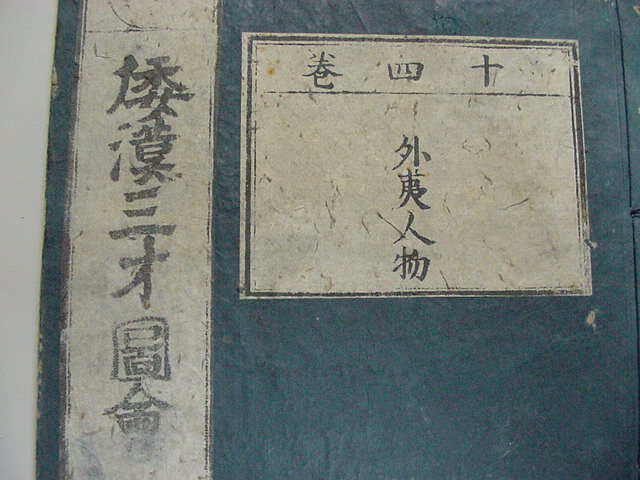 倭漢三才圖會
十四巻
外夷人物